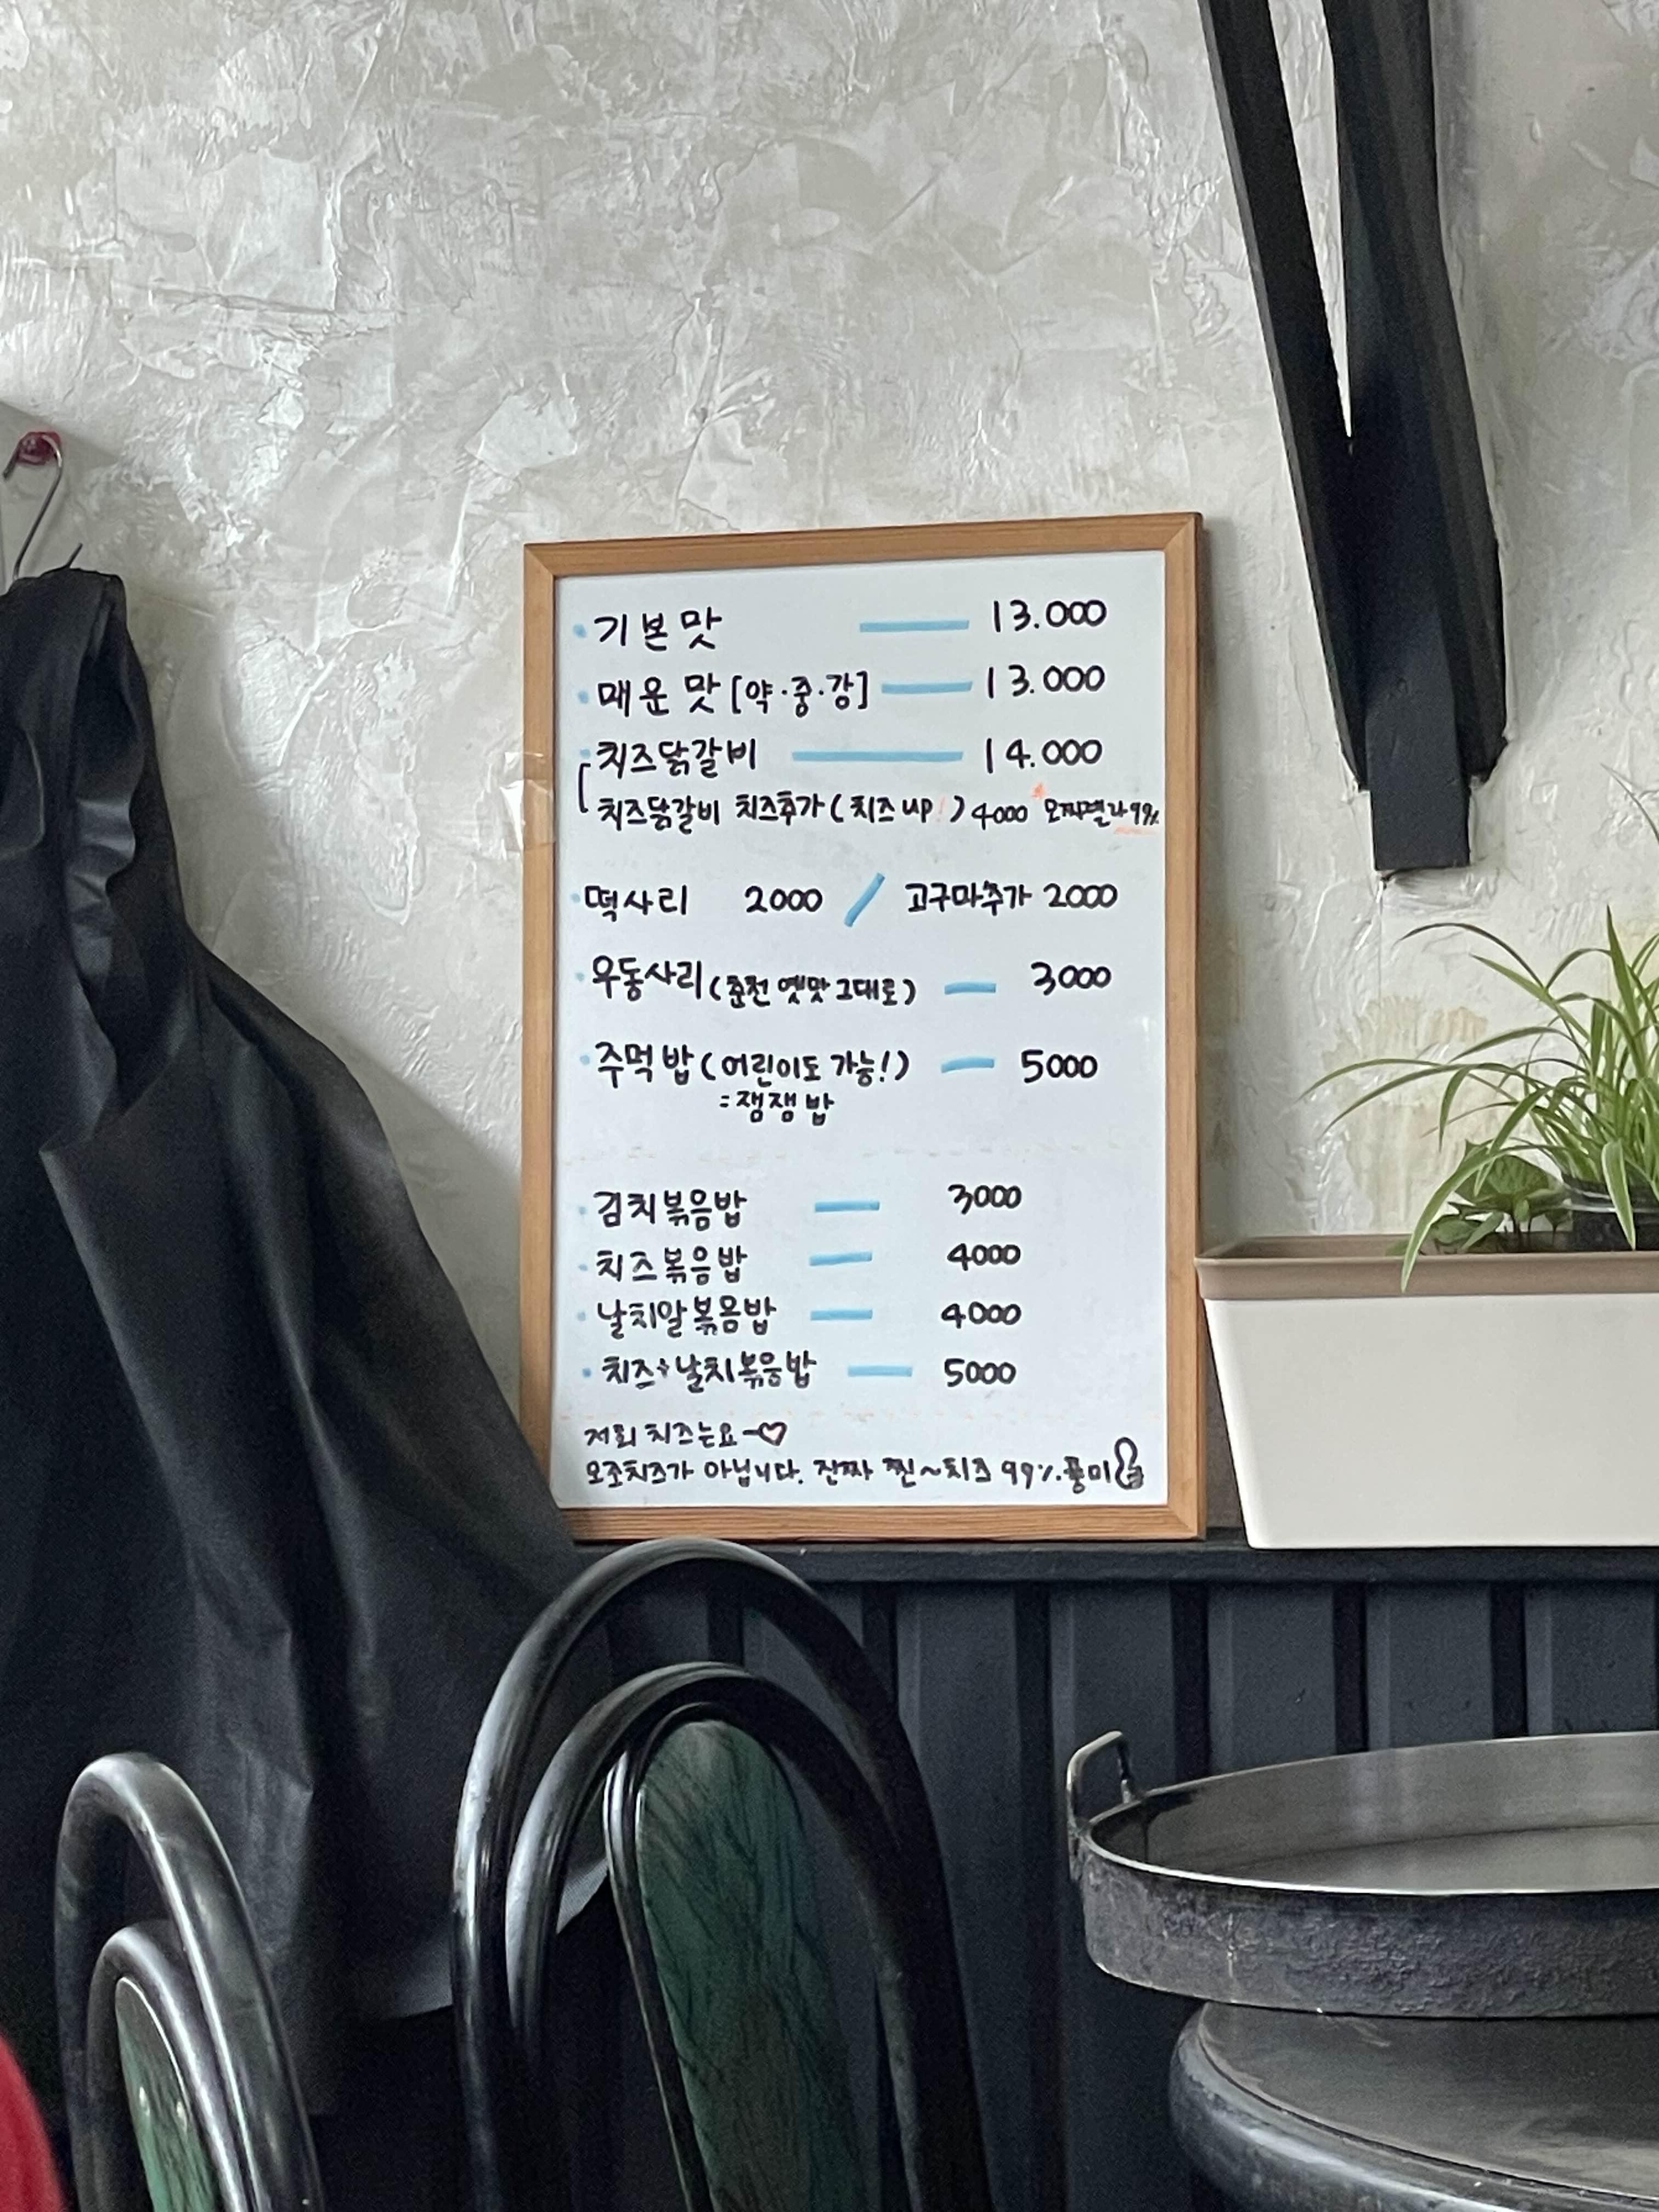 기본맛 13.000
매운 맛 [약·중·강] 13.000
치즈닭갈비 14.000
치즈닭갈비 치즈추가 (치즈 up!) 4000 모짜렐라 99%
떡사리 2000 / 고구마추가 2000
우동사리 (춘천 옛맛 그대로) 3000
주먹밥 (어린이도 가능!) 5000
= 잼잼밥
김치볶음밥 3000
치즈볶음밥 4000
날치알볶음밥 4000
치즈+날치볶음밥 5000
저희 치즈는요~♡
모조치즈가 아닙니다. 진짜 찐~치즈 99% 풍미